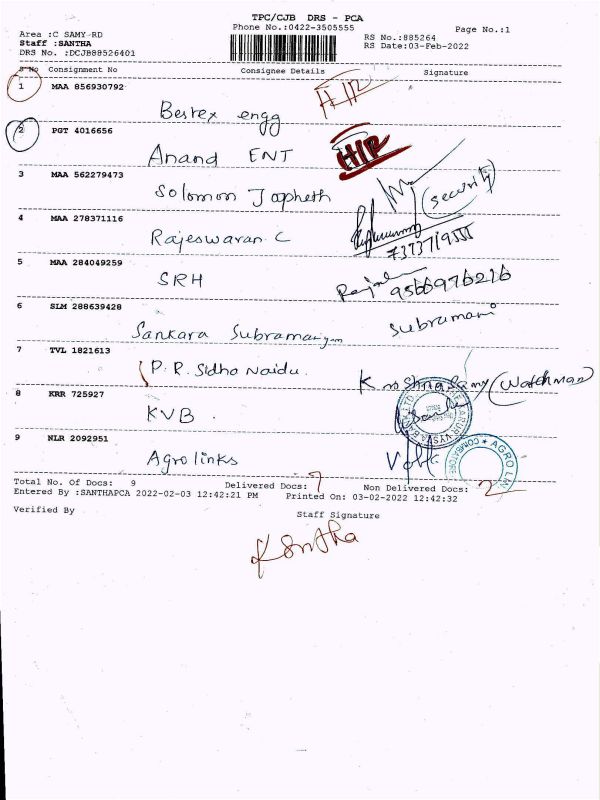 TPC/CJB DRS - PCA
Phone No.:0422-3505555
Page No.:1
Area :C SAMY-RD
RS No.:885264
Staff :SANTHA
RS Date:03-Feb-2022
DRS No. :DCJB88526401
S No Consignment No Consignee Details Signature
1 MAA 856930792
Bestex engg
2 PGT 4016656
Anand ENT
3 MAA 562279473
Solomon Japheth
(Security)
4 MAA 278371116
Rajeswaran C
5 MAA 284049259
SRH
9566976216
6 SLM 288639428
Sankara Subramanyam
Subramani
7 TVL 1821613
P.R. Sidha Naidu.
Krishnasamy (Watchman)
8 KRR 725927
KVB.
9 NLR 2092951
Agrolinks
Total No. Of Docs: 9 Delivered Docs: 7 Non Delivered Docs: 2
Entered By :SANTHAPCA 2022-02-03 12:42:21 PM Printed On: 03-02-2022 12:42:32
Verified By Staff Signature
K Sntha